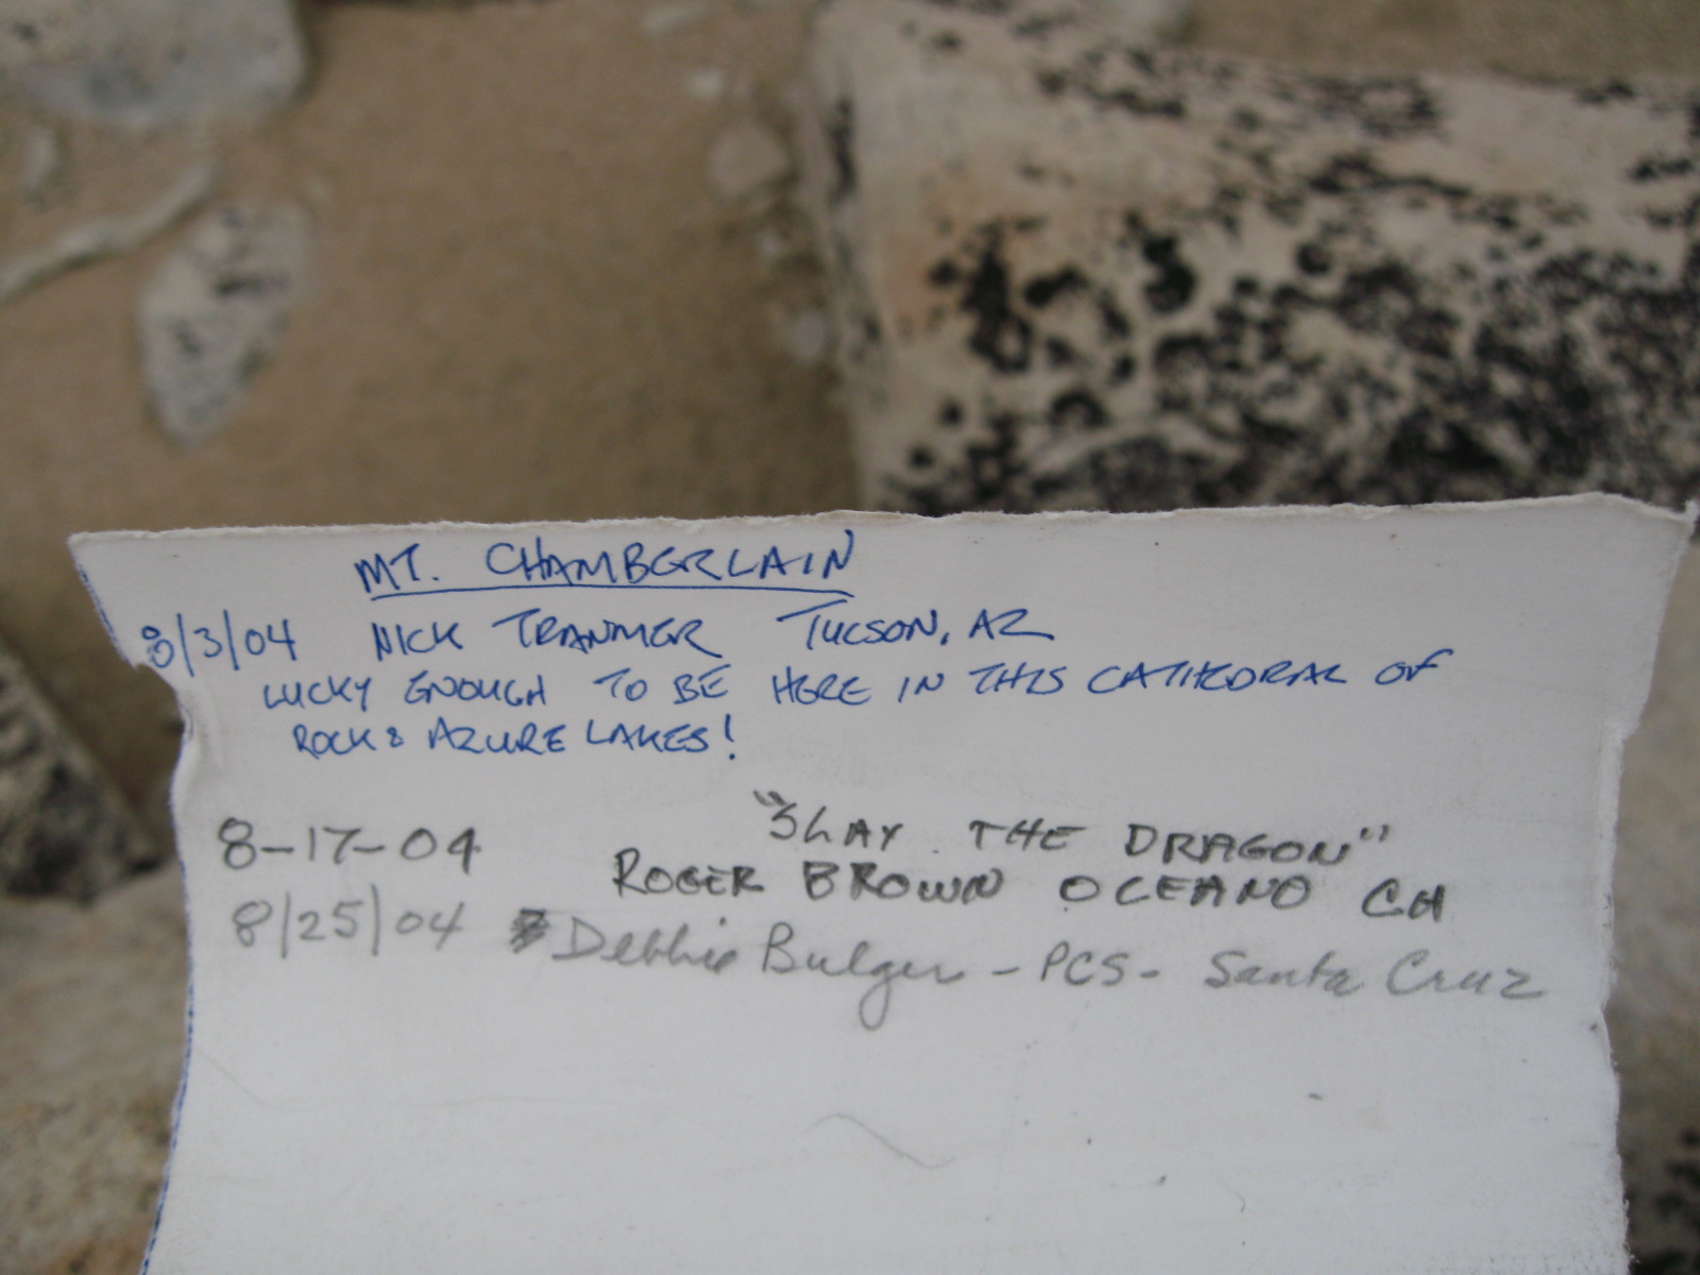 MT. CHAMBERLAIN
8/3/04 NICK TRANMER TUCSON, AZ
LUCKY ENOUGH TO BE HERE IN THIS CATHEDRAL OF
ROCK & AZURE LAKES!
"SLAY THE DRAGON"
8-17-04 ROGER BROWN OCEANO CA
8/25/04 Debbie Bulger - PCS - Santa Cruz